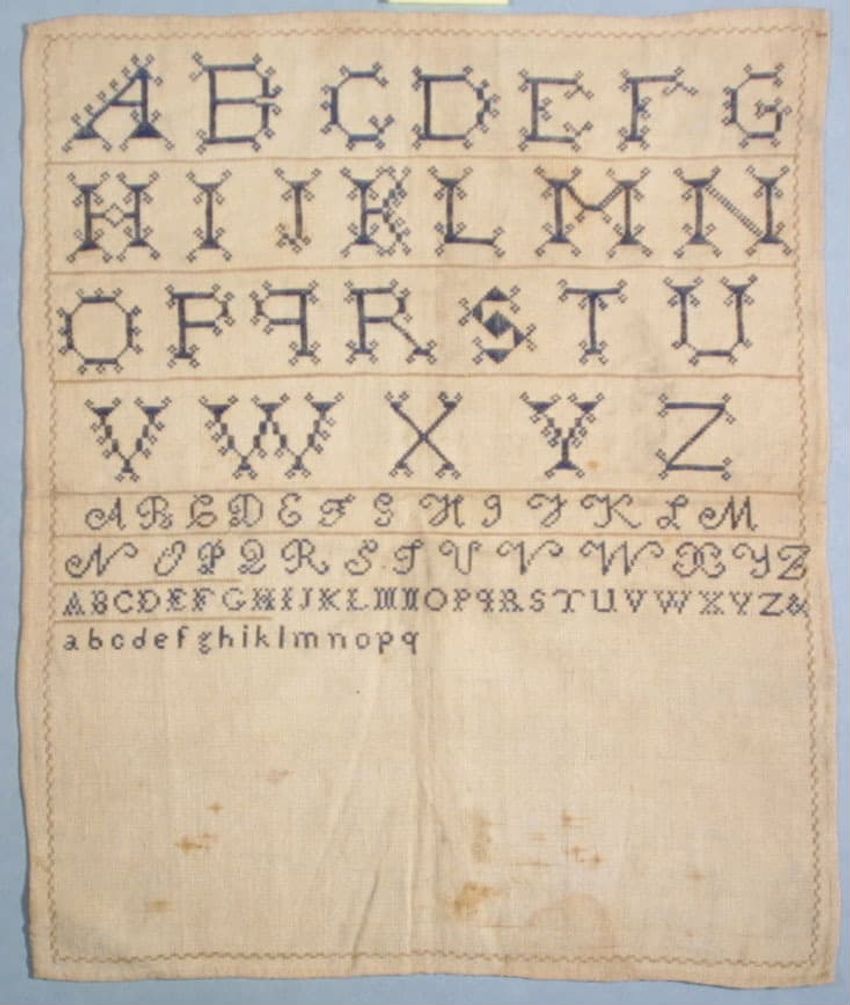 A B C D E F G
H I J K L M N
O P Q R S T U
V W X Y Z
A B C D E F G H I J K L M
N O P Q R S T U V W X Y Z
A B C D E F G H I J K L M N O P Q R S T U V W X Y Z &
a b c d e f g h i k l m n o p q